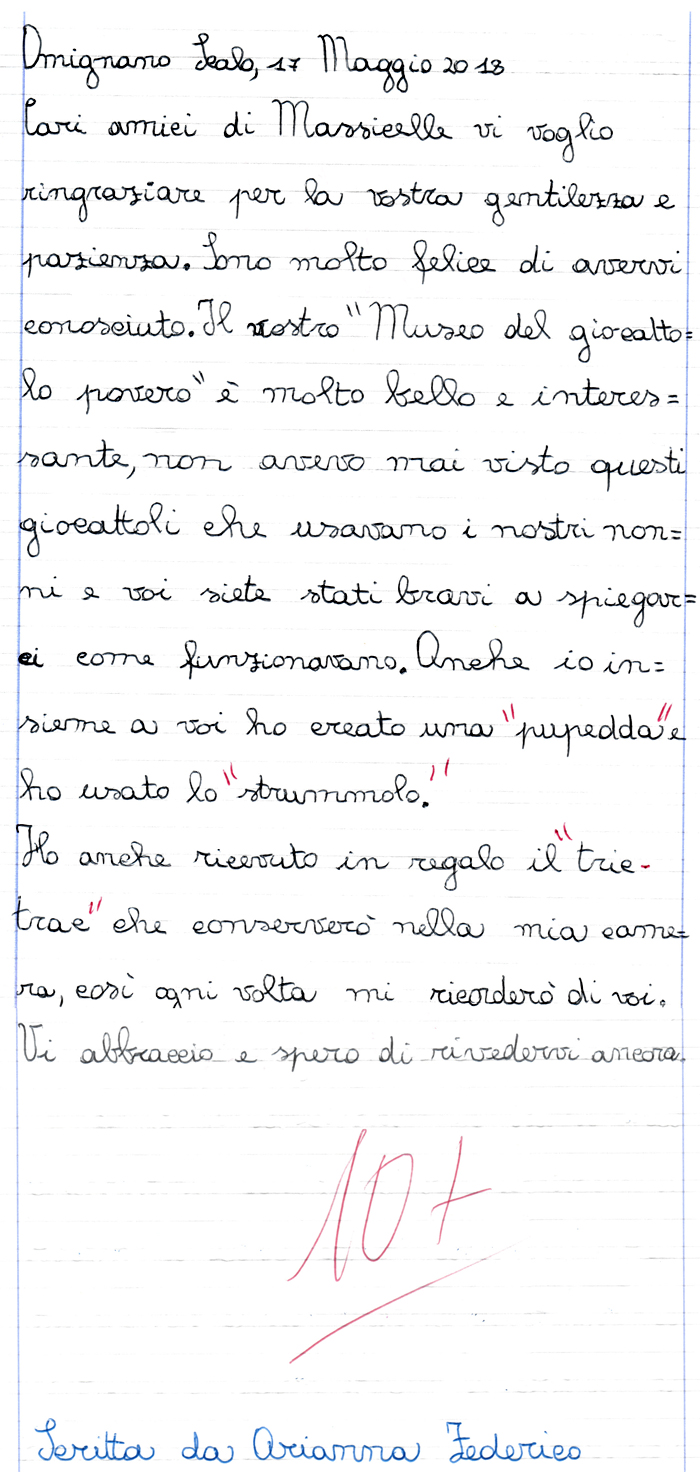 Omignano Scalo, 17 Maggio 2018
Cari amici di Massicelle vi voglio
ringraziare per la vostra gentilezza e
pazienza. Sono molto felice di avervi
conosciuto. Il vostro "Museo del giocatto=
lo povero" è molto bello e interes=
sante, non avevo mai visto questi
giocattoli che usavano i nostri non=
ni e voi siete stati bravi a spiegar=
ci come funzionavano. Anche io in=
sieme a voi ho creato una "pupedda" e
ho usato lo "strummolo."
Ho anche ricevuto in regalo il "tric-
trac" che conserverò nella mia came=
ra, così ogni volta mi ricorderò di voi.
Vi abbraccio e spero di rivedervi ancora.
10+
Scritta da Arianna Federico